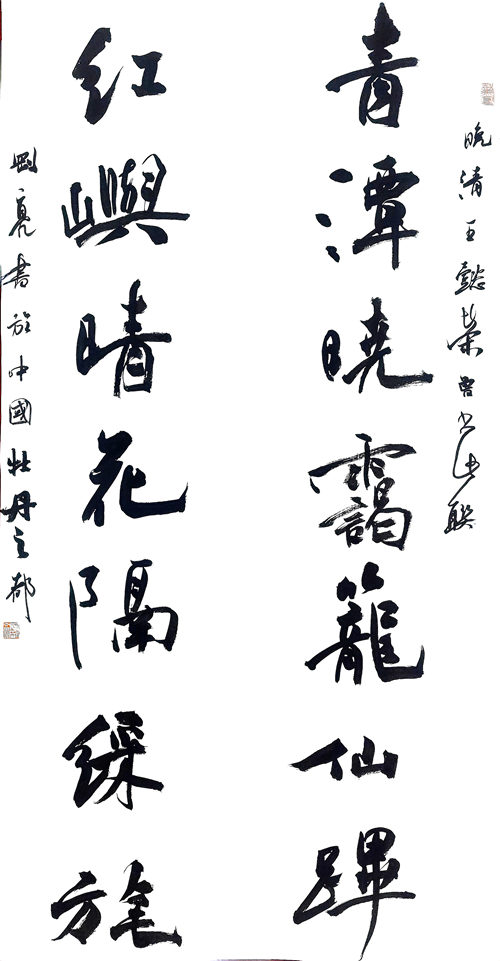 晚清王懿榮曾書此聯
青潭曉靄籠仙蹕
紅嶼晴花隔綵旄
剛亮書於中國牡丹之都